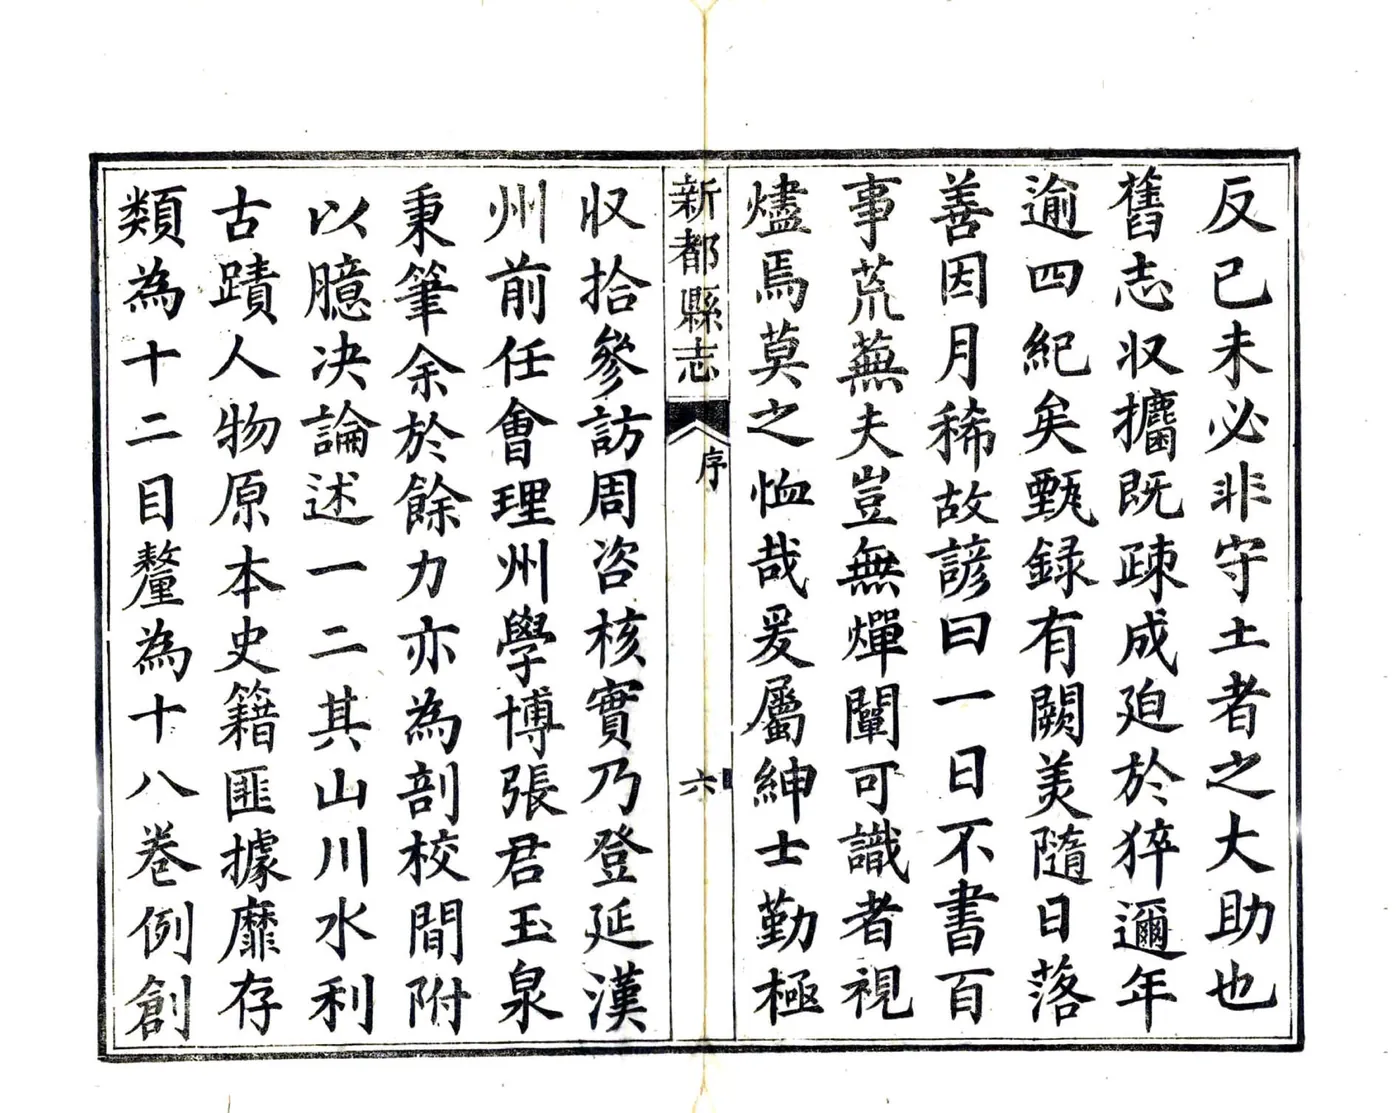 反已未必非守土者之大助也
舊志収攟既疎成廹於猝邇年
逾四紀矣甄録有闕美隨日落
善因月稀故諺曰一日不書百
事荒蕪夫豈無燀闡可識者視
燼焉莫之恤哉爰屬紳士勤極
新都縣志
序
六
収拾叅訪周咨核實乃登延漢
州前任會理州學博張君玉泉
秉筆余於餘力亦為剖校間附
以臆决論述一二其山川水利
古蹟人物原本史籍匪據靡存
類為十二目釐為十八卷例創